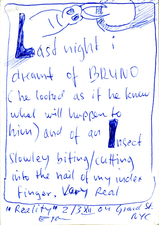 Last night i
dreamt of BRUNO
(he looked as if he knew
what will happen to
him) and of an Insect
slowley biting/cutting
into the nail of my index
finger. Very Real
"Reality" 2/3 XII on Grand St.
NYC